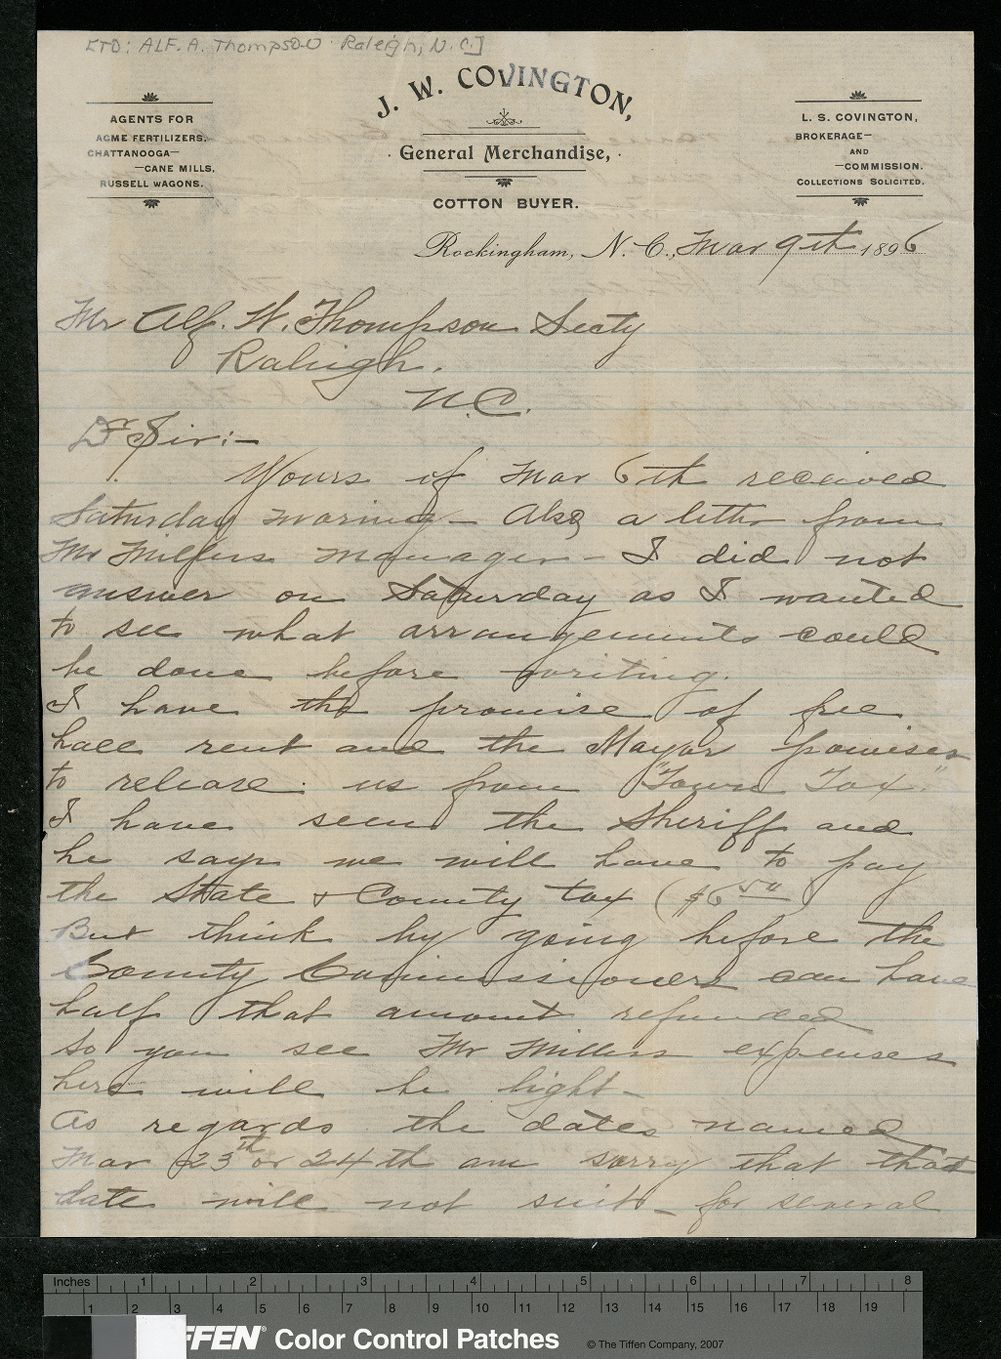 [TO: ALF. A. Thompson Raleigh, N.C.]
J. W. COVINGTON,
General Merchandise,
COTTON BUYER.
AGENTS FOR
ACME FERTILIZERS.
CHATTANOOGA—
—CANE MILLS,
RUSSELL WAGONS.
L. S. COVINGTON,
BROKERAGE—
AND
—COMMISSION.
COLLECTIONS SOLICITED.
Rockingham, N. C., Mar 9th 1896
Mr Alf. W. Thompson Secty
Raleigh.
N.C.
Dr Sir:—
Yours of Mar 6th received
Saturday morning— Also a letter from
Mr Millers manager— I did not
answer on Saturday as I wanted
to see what arrangements could
be done before writing.
I have the promise of free
hall rent and the Mayor promises
to release us from "Town Tax."
I have seen the Sheriff and
he says we will have to pay
the State & County tax ($6 50)
But think by going before the
County Commissioners can have
half that amount refunded
So you see Mr Millers expenses
here will be light—
As regards the dates named
Mar 23th or 24th am sorry that that
date will not suit— for several
Inches 1 2 3 4 5 6 7 8
1 2 3 4 5 6 7 8 9 10 11 12 13 14 15 16 17 18 19
FFEN® Color Control Patches © The Tiffen Company, 2007